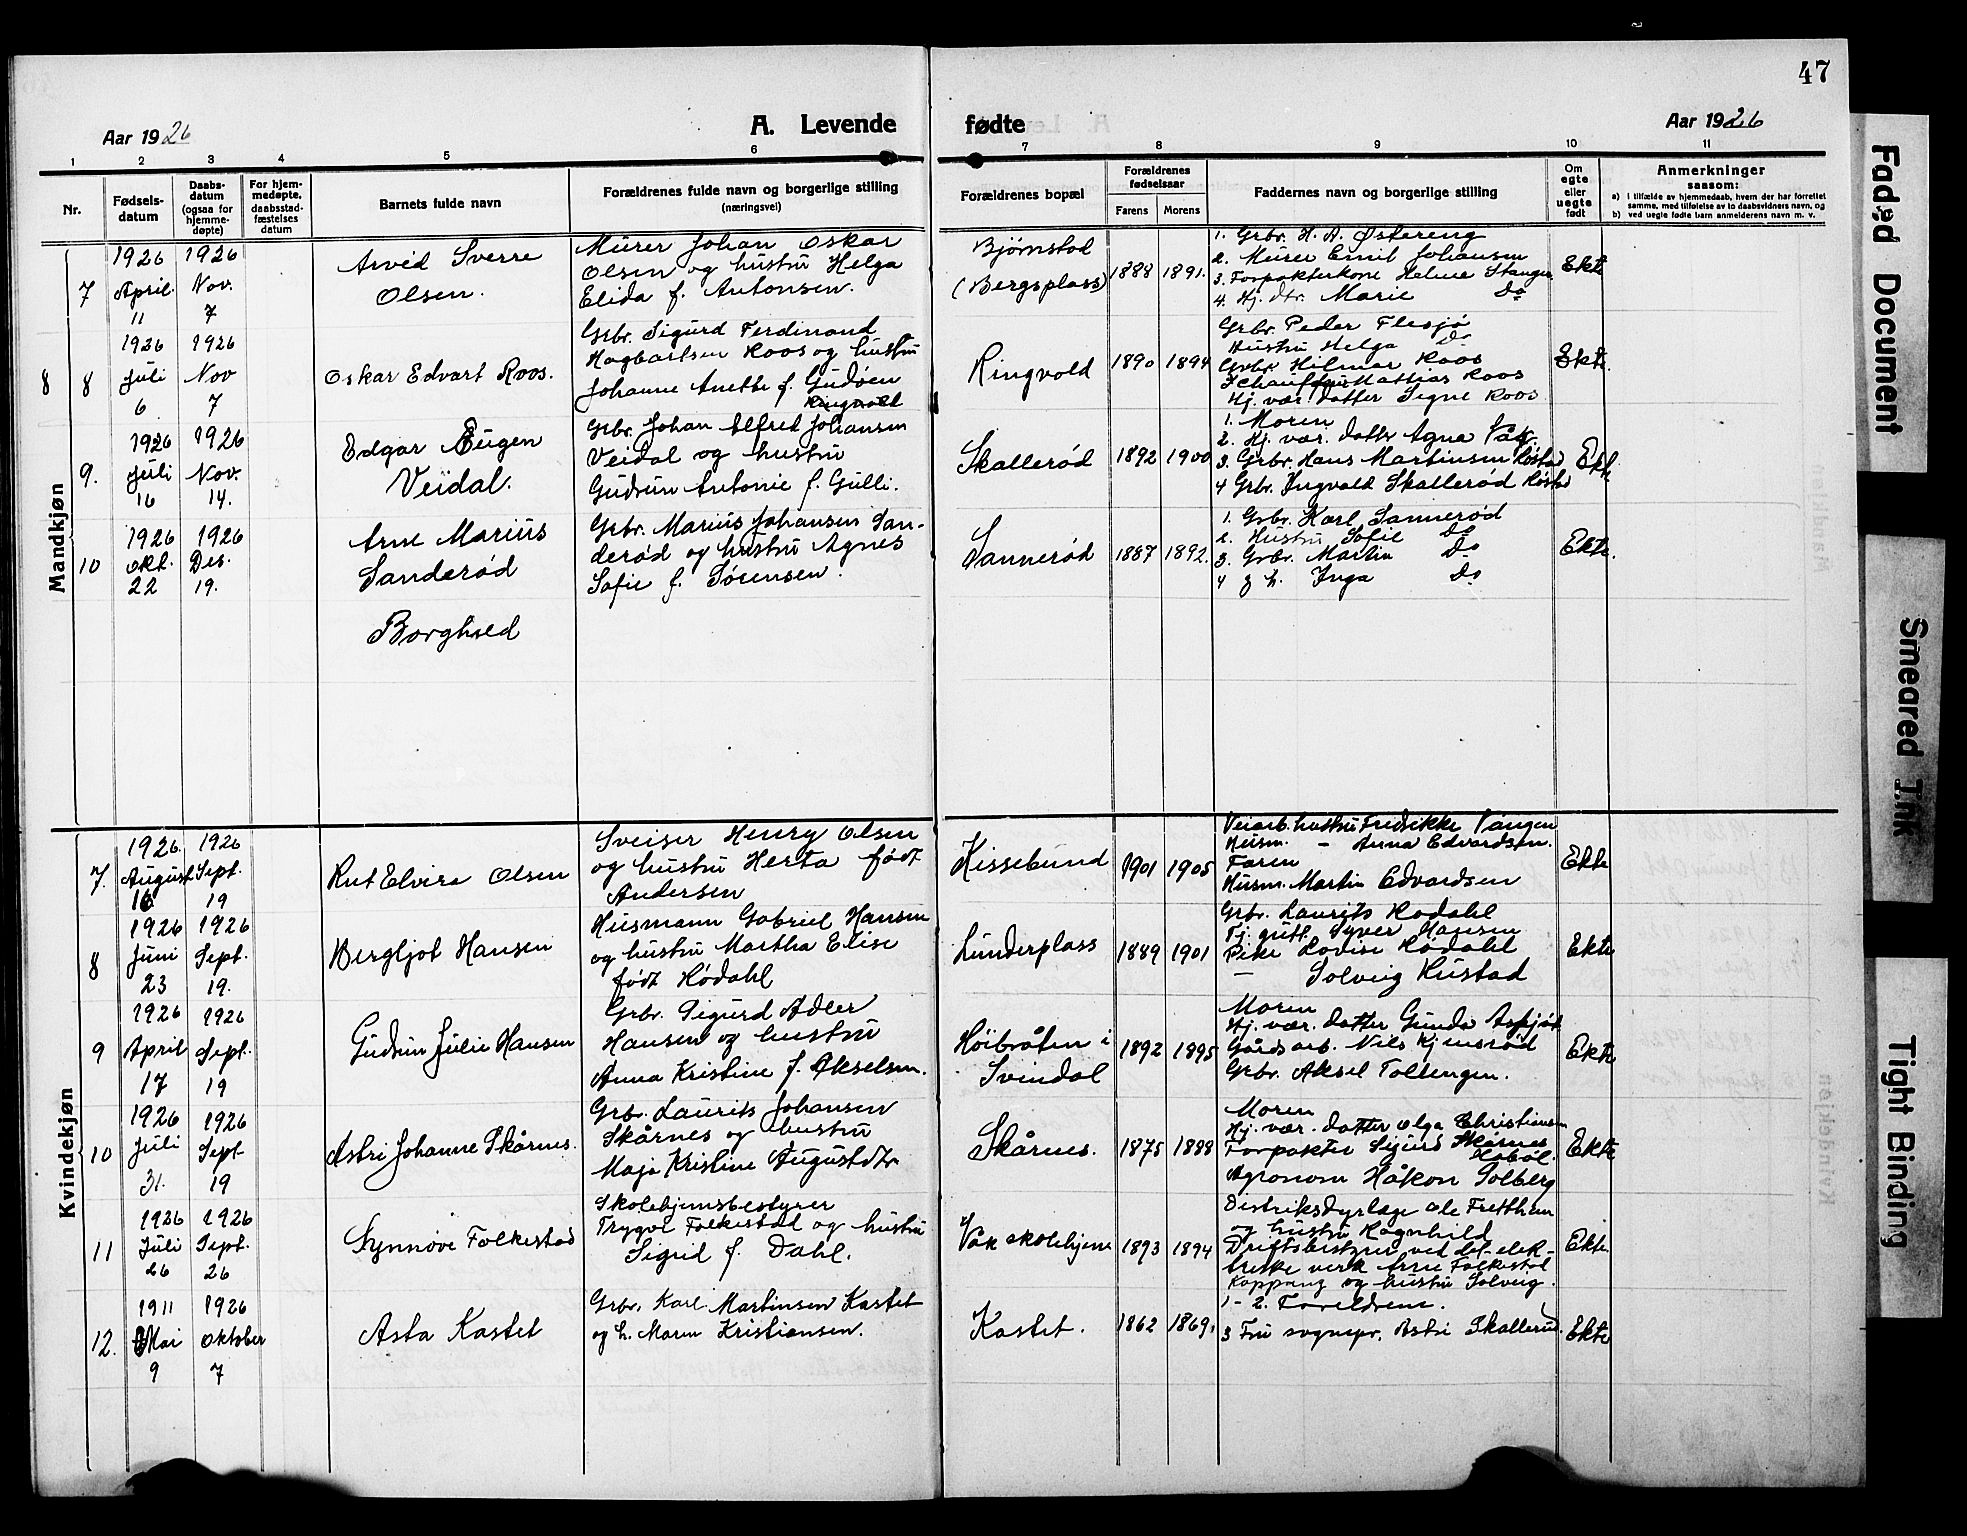 47
Aar 1926
A. Levende fødte
Aar 1926
1 2 3 4 5 6 7 8 9 10 11
Nr.
Fødsels-
datum
Daabs-
datum
(ogsaa for
hjemme-
døpte)
For hjem-
medøpte,
daabsstad-
fæstelses
datum
Barnets fulde navn
Forældrenes fulde navn og borgerlige stilling
(næringsvei)
Forældrenes bopæl
Forældrenes
fødselsaar
Farens Morens
Faddernes navn og borgerlige stilling
Om
egte
eller
uegte
født
Anmerkninger
saasom:
a) i tilfælde av hjemmedaab, hvem der har forrettet
samme, med tilføielse av to daabsvidners navn, og
b) ved uegte fødte barn anmelderens navn m. v.
Mandkjøn
7
1926
April
11
1926
Nov.
7
Arvid Sverre
Olsen.
Murer Johan Oskar
Olsen og hustru Helga
Elida f. Antonsen.
Bjørnstad
(Bergsplass)
1888 1891.
1. Grbr. H. A. Østereng
2. Murer Emil Johansen
3. Forpakterkone Halma Stangen
4. Hj. dtr. Marie Do
Ekte
8 8
1926
Juli
6
1926
Nov
7
Oskar Edvart Roos.
Grbr. Sigurd Ferdinand
Hagbartsen Roos og hustru
Johanne Anette f. Gudøen
Ringvold
Ringvold
1890 1894
Grbr. Peder Flesjø
Hustru Helga Do
Grbr. Hilmar Roos
Schauffør Mathias Roos
Hj. vær. datter Signe Roos
Ekte
9.
1926
Juli
16
1926
Nov.
14.
Edgar Eugen
Veidal.
Grbr. Johan Alfred Johansen
Veidal og hustru
Gudrun Antonie f. Gulli.
Skallerød
1892 1900
1. Moren
2. Hj. vær. datter Agna Våg.
3. Grbr. Hans Martinsen
4 Grbr. Ingvald Skallerød
Ekt.
10
1926
Okt.
22
1926
Des.
19.
Arne Marius
Sanderød
Grbr. Marius Johansen San-
derød og hustru Agnes
Sofie f. Sørensen.
Sannerød
1887 1892.
1. Grbr. Karl Sannerød
2. Hustru Sofie Do
3. Grbr. Martin Do
4 g h. Inga Do
Ekte.
Borghild
Kvindekjøn
7.
1926
August
16
1926
Sept.
19
Rut Elvira Olsen
Sveiser Henry Olsen
og hustru Herta født
Andersen
Kissebund
1901 1905
Veiarb. hustru Fredrikke Vangen
Husm. — Anna Edvardsen.
Faren
Husm. Martin Edvardsen
Ekte
8
1926
Juni
23
1926
Sept.
19.
Bergljot Hansen
Husmann Gabriel Hansen
og hustru Martha Elise
født Hødahl
Lunderplass
1889 1901
Grbr. Laurits Hødahl
Tj. gutt. Syver Hansen
Pike Lovise Hødahl
— Solveig Hustad
Ekte
9
1926
April
17
1926
Sept.
19
Gudrun Julie Hansen
Grbr. Sigurd Adler
Hansen og hustru
Anna Kristine f. Akselsen.
Höibråten i
Svindal
1892 1895
Moren
Hj. vær. datter Gunda Aspjöt
Gårdsarb. Nils Kjensrød
Grbr. Aksel Tollengen.
Ekte
10
1926
Juli
31.
1926
Sept
19
Astri Johanne Skårnes.
Grb. Laurits Johansen
Skårnes og hustru
Maja Kristine Augustdtr
Skårnes.
1875 1888
Moren
Hj. vær. datter Olga Christiansen
Forpakter Sigurd Skårnes
Hobøl.
Agronom Håkon Solberg
Ekte
11
1926
Juli
26
1926
Sept.
26
Synnøve Folkestad
Skolehjemsbestyrer
Trygve Folkestad og hustru
Sigrid f. Dahl.
Våk skolehjem
1893 1894
Distriksdyrlæge Ole Fretthem
og hustru Ragnhild
Driftsbestyrer ved det elek-
triske verk Arne Folkestad
Koppang og hustru Solveig.
Ekte.
12.
1911
Mai
9
1926
Oktober
7
Asta Kastet
Grbr. Karl Martinsen Kastet
og h. Maren Kristiansen.
Kastet.
1862 1869.
1 - 2. Foreldrene.
3 Fru sognepr. Astri Skallerud.
Ekte
Faded Document
Smeared Ink
Tight Binding